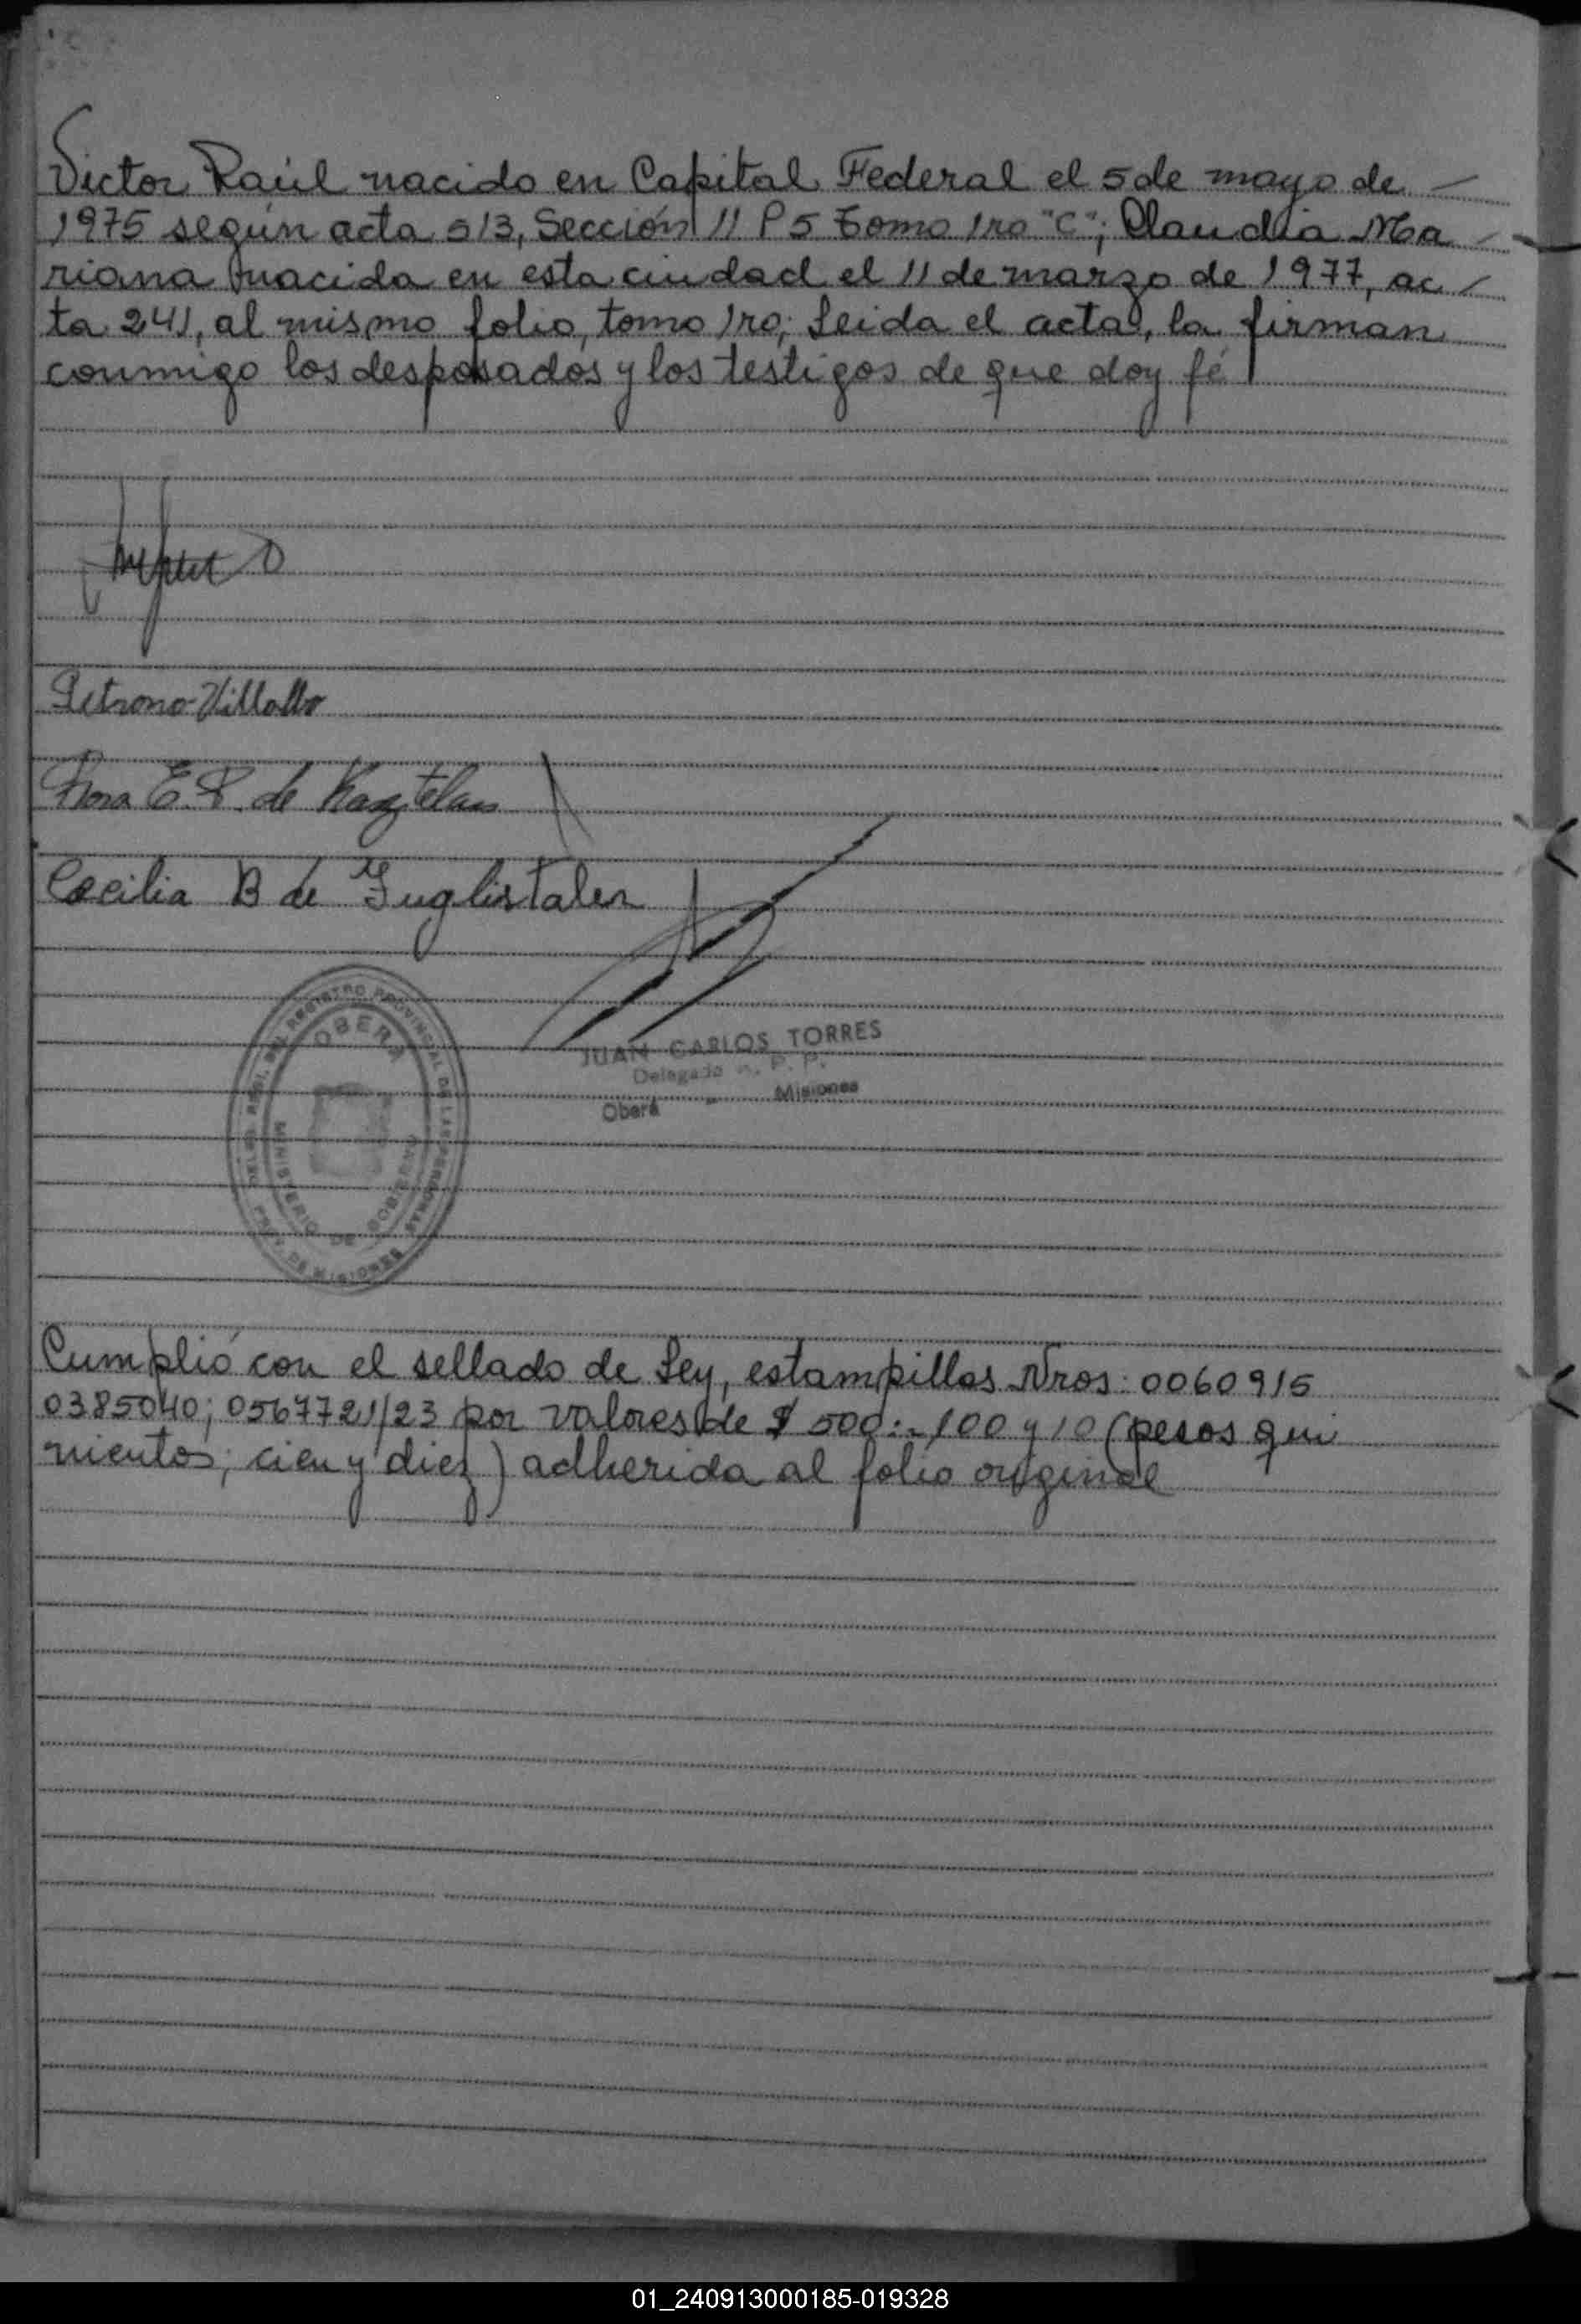 Victor Raúl nacido en Capital Federal el 5 de mayo de
1975 según acta 513, Sección 11 P 5 Tomo 1ro "C"; Claudia Ma
riana nacida en esta ciudad el 11 de marzo de 1977, ac
ta 241, al mismo folio, tomo 1ro; Leida el acta, la firman
conmigo los desposados y los testigos de que doy fé
Petrona Villalba
Nora E. P. de Kasztelan
Cecilia B de Inglistaler
REGISTRO PROVINCIAL DE LAS PERSONAS
OBERA
MINISTERIO DE GOBIERNO
PROV. DE MISIONES
JUAN CARLOS TORRES
Delegado R. P. P.
Oberá - Misiones
Cumplió con el sellado de Ley, estampillas Nros: 0060915
0385040; 0567721/23 por valores de $ 500.- 100 y 10 (pesos qui
nientos; cien y diez) adherida al folio original
01_240913000185-019328